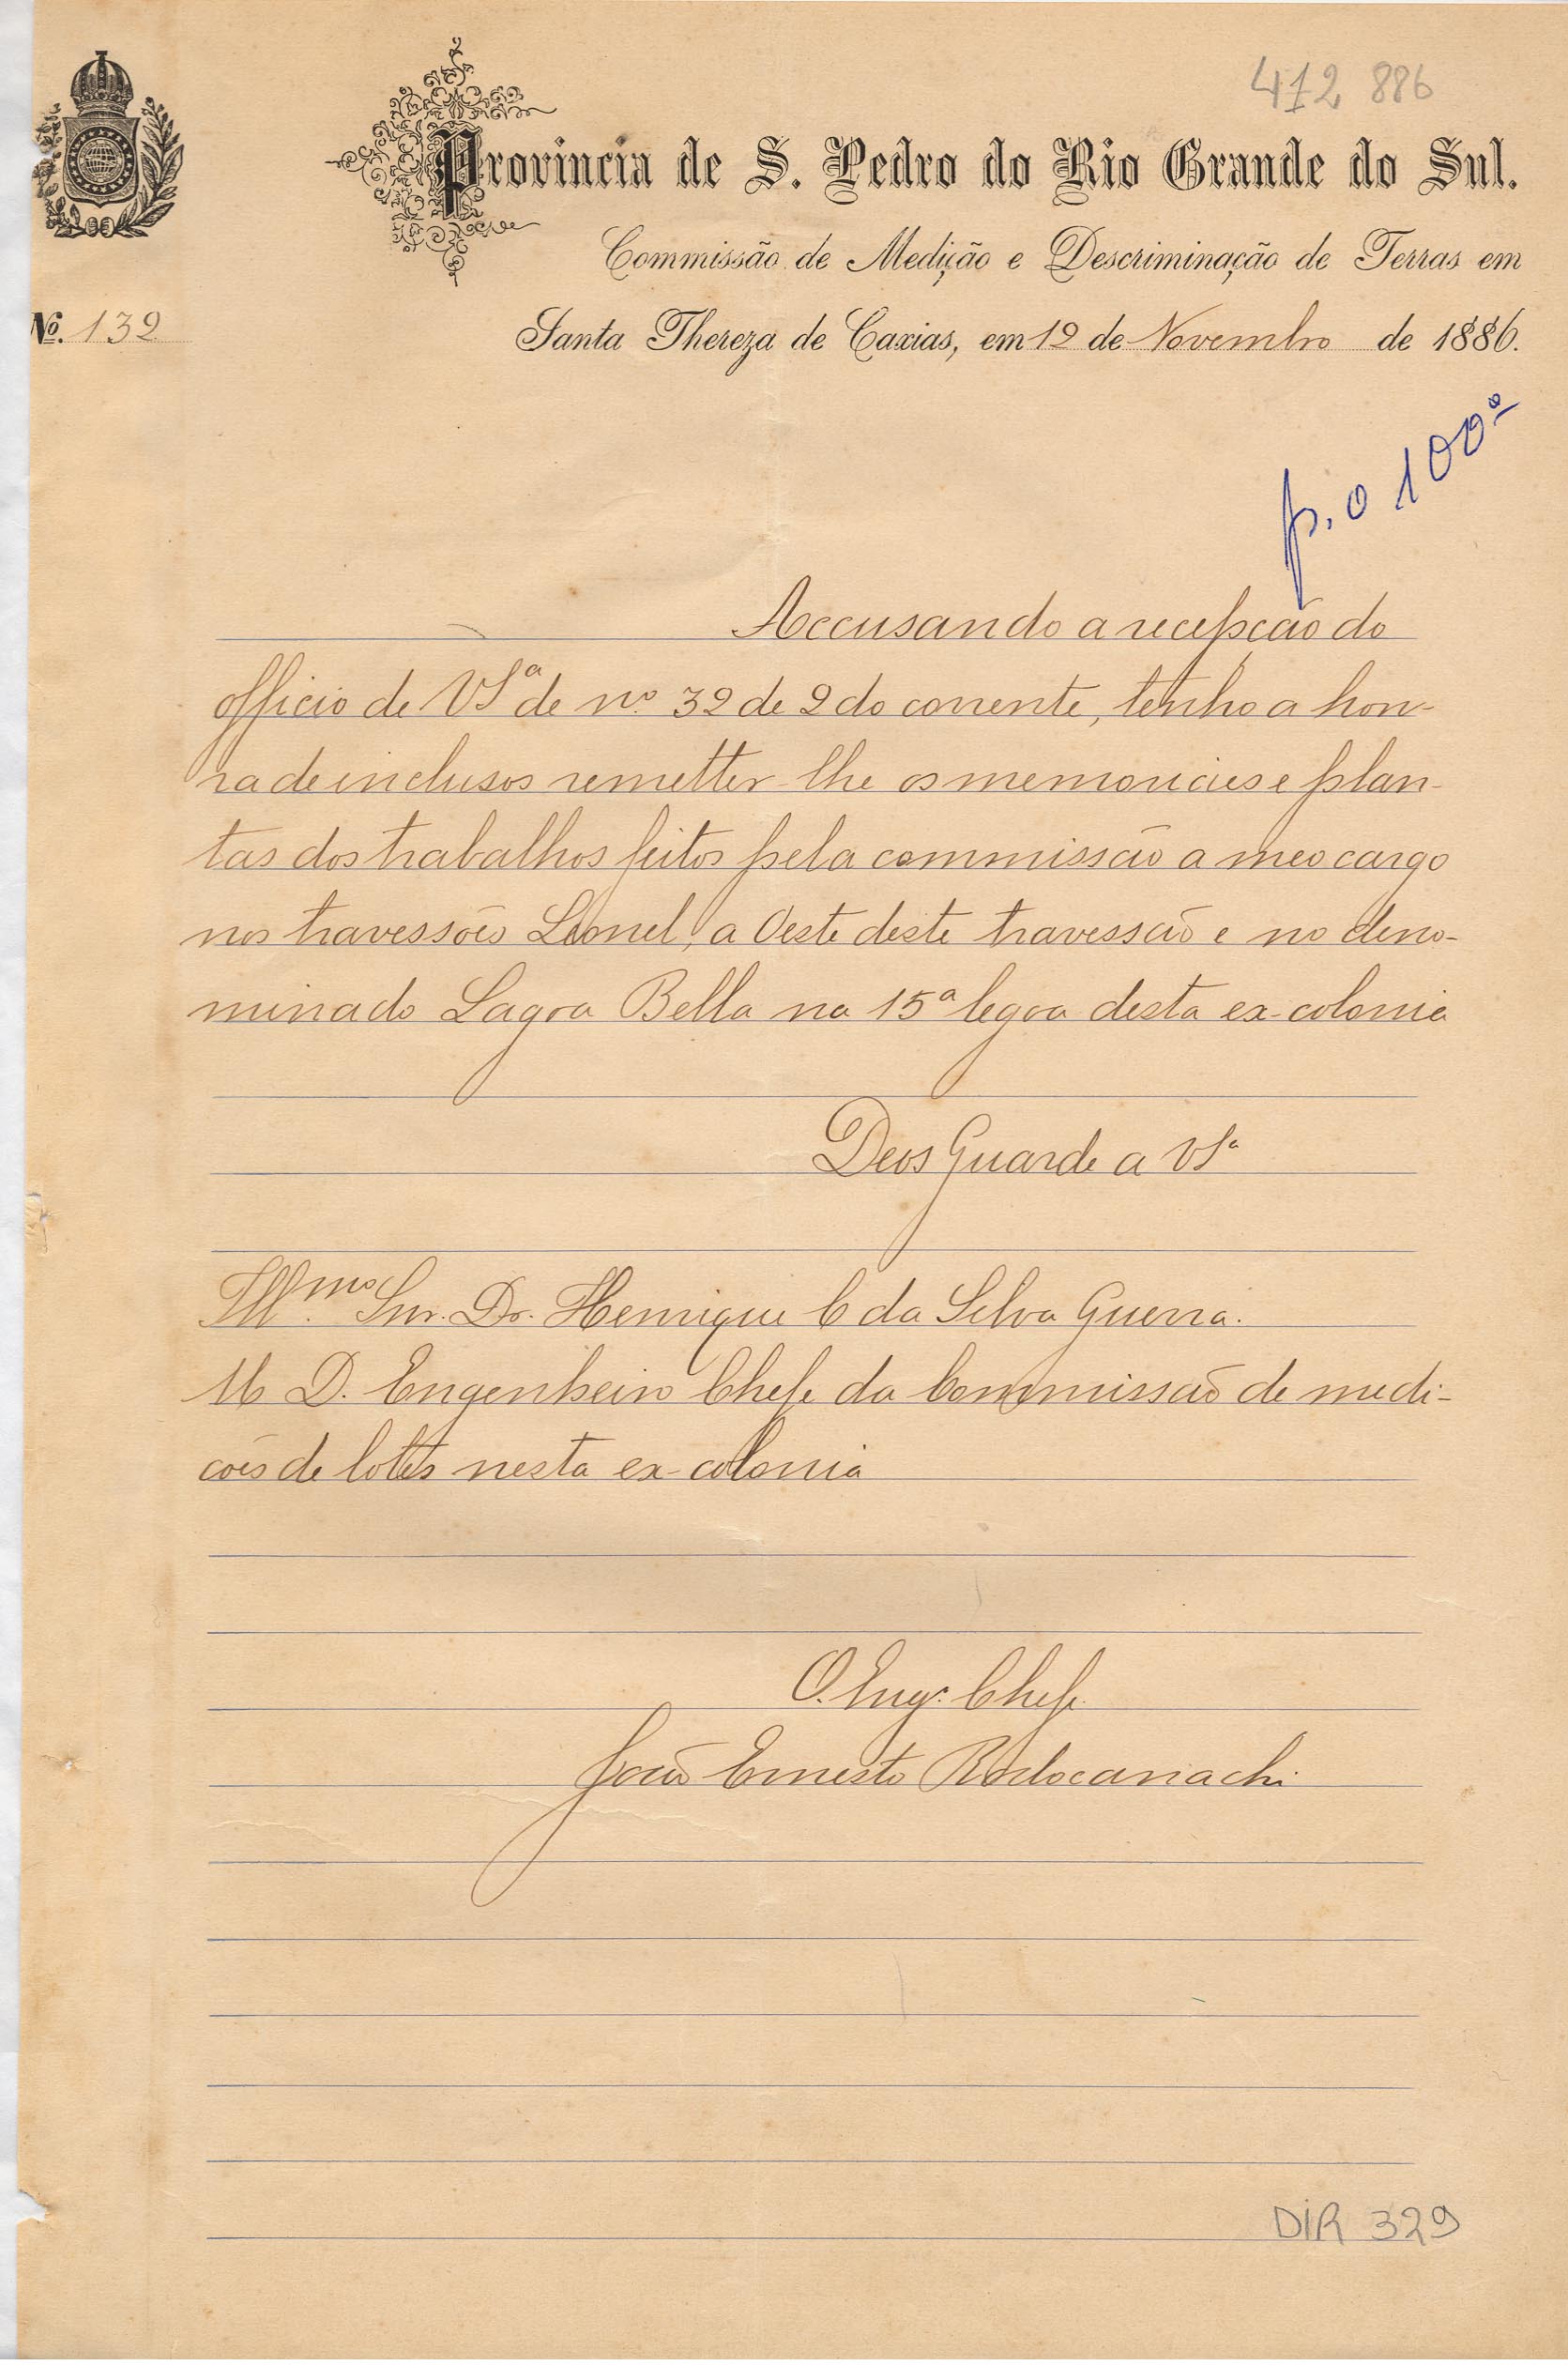 412 886
Provincia de S. Pedro do Rio Grande do Sul.
Commissão de Medição e Descriminação de Terras em
Nº. 132
Santa Thereza de Caxias, em 12 de Novembro de 1886.
p. o 100º
Accusando a recepção do
officio de VSª de nº 32 de 2 do corrente, tenho a hon-
ra de inclusos remetter-lhe os memoriaes e plan-
tas dos trabalhos feitos pela commissão a meo cargo
nos travessões Leonel, a Oeste deste travessão e no deno-
minado Lagoa Bella na 15ª legoa desta ex-colonia
Deos Guarde a VSª
Illmo. Snr. Dr. Henrique C da Silva Guerra.
M D. Engenheiro Chefe da Commissão de medi-
cões de lotes nesta ex-colonia
O. Engº. Chefe
João Ernesto Rodocanachi
DIR 329